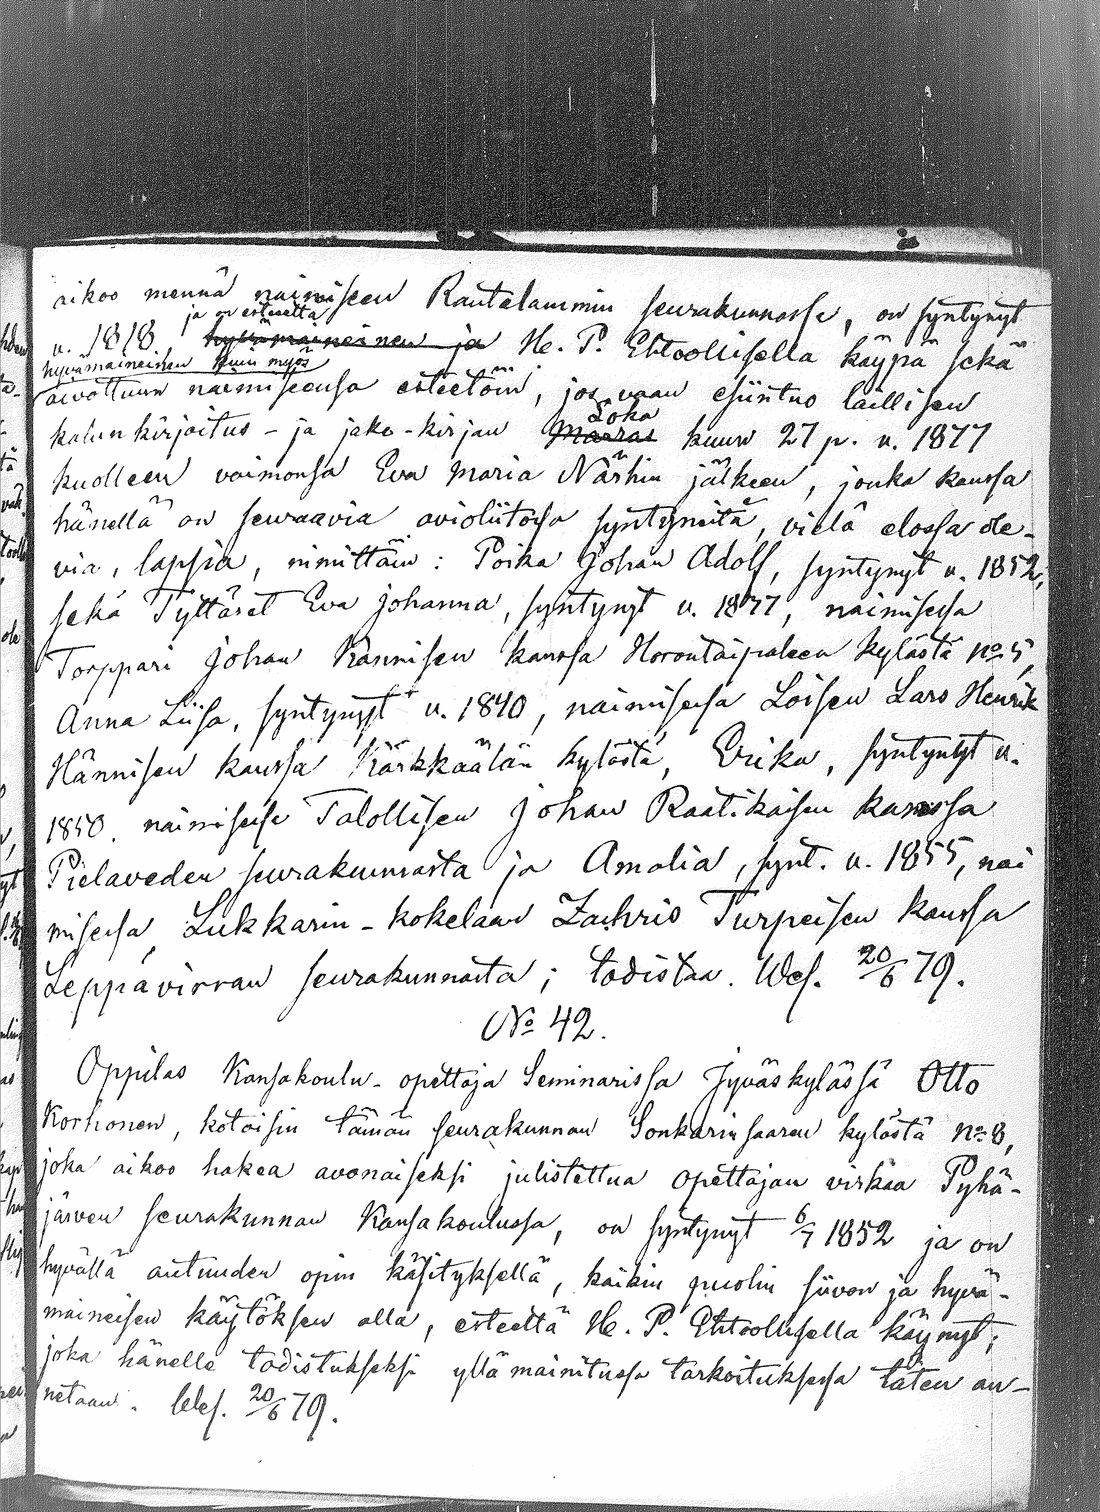 aikoo mennä naimiseen Rautalammin seurakunnassa, on syntynyt
ja on esteettä
u. 1818 hyvämaineinen ja He. P. Ehtoollisella käypä sekä
hyvämaineinen kuin myös
aivottuun naimiseensa esteetöin, jos vaan esiintuo laillisen
Loka
kalunkirjoitus - ja jako-kirjan Marras kuun 27 p. v. 1877
kuolleen vaimonsa Eva Maria Närhin jälkeen, jonka kanssa
hänellä on seuraavia avioliitossa syntyneitä, vielä elossa ole-
via, lapsia, nimittäin: Poika Johan Adolf, syntynyt v. 1852,
sekä Tyttäret Eva Johanna, syntynyt v. 1877, naimisessa
Torppari Johan Kännisen kanssa Horontaipaleen kylästä No 5,
Anna Liisa, syntynyt v. 1840, naimisessa Loisen Lars Henrik
Hännisen kanssa Kärkkäälän kylästä, Erika, syntynyt v.
1850, naimisessa Talollisen Johan Raatikaisen kanssa
Pielaveden seurakunnasta ja Amalia, synt. v. 1855, nai
misessa Lukkarin-kokelaan Zachris Turpeisen kanssa
Leppävirran seurakunnasta; todistaa. Wes. 20/6 79.
No 42.
Oppilas Kansakoulu-opettaja Seminarissa Jyväskylässä Otto
Korhonen, kotoisin tämän seurakunnan Sonkarinsaaren kylästä No 8,
joka aikoo hakea avonaiseksi julistettua opettajan virkaa Pyhä-
järven seurakunnan Kansakoulussa, on syntynyt 6/7 1852 ja on
hyvällä autuuden opin käsityksellä, kaikin puolin siivon ja hyvä-
maineisen käytöksen alla, esteettä He. P. Ehtoollisella käynyt;
joka hänelle todistukseksi yllämainitussa tarkoituksessa täten an-
netaan. Wes. 20/6 79.